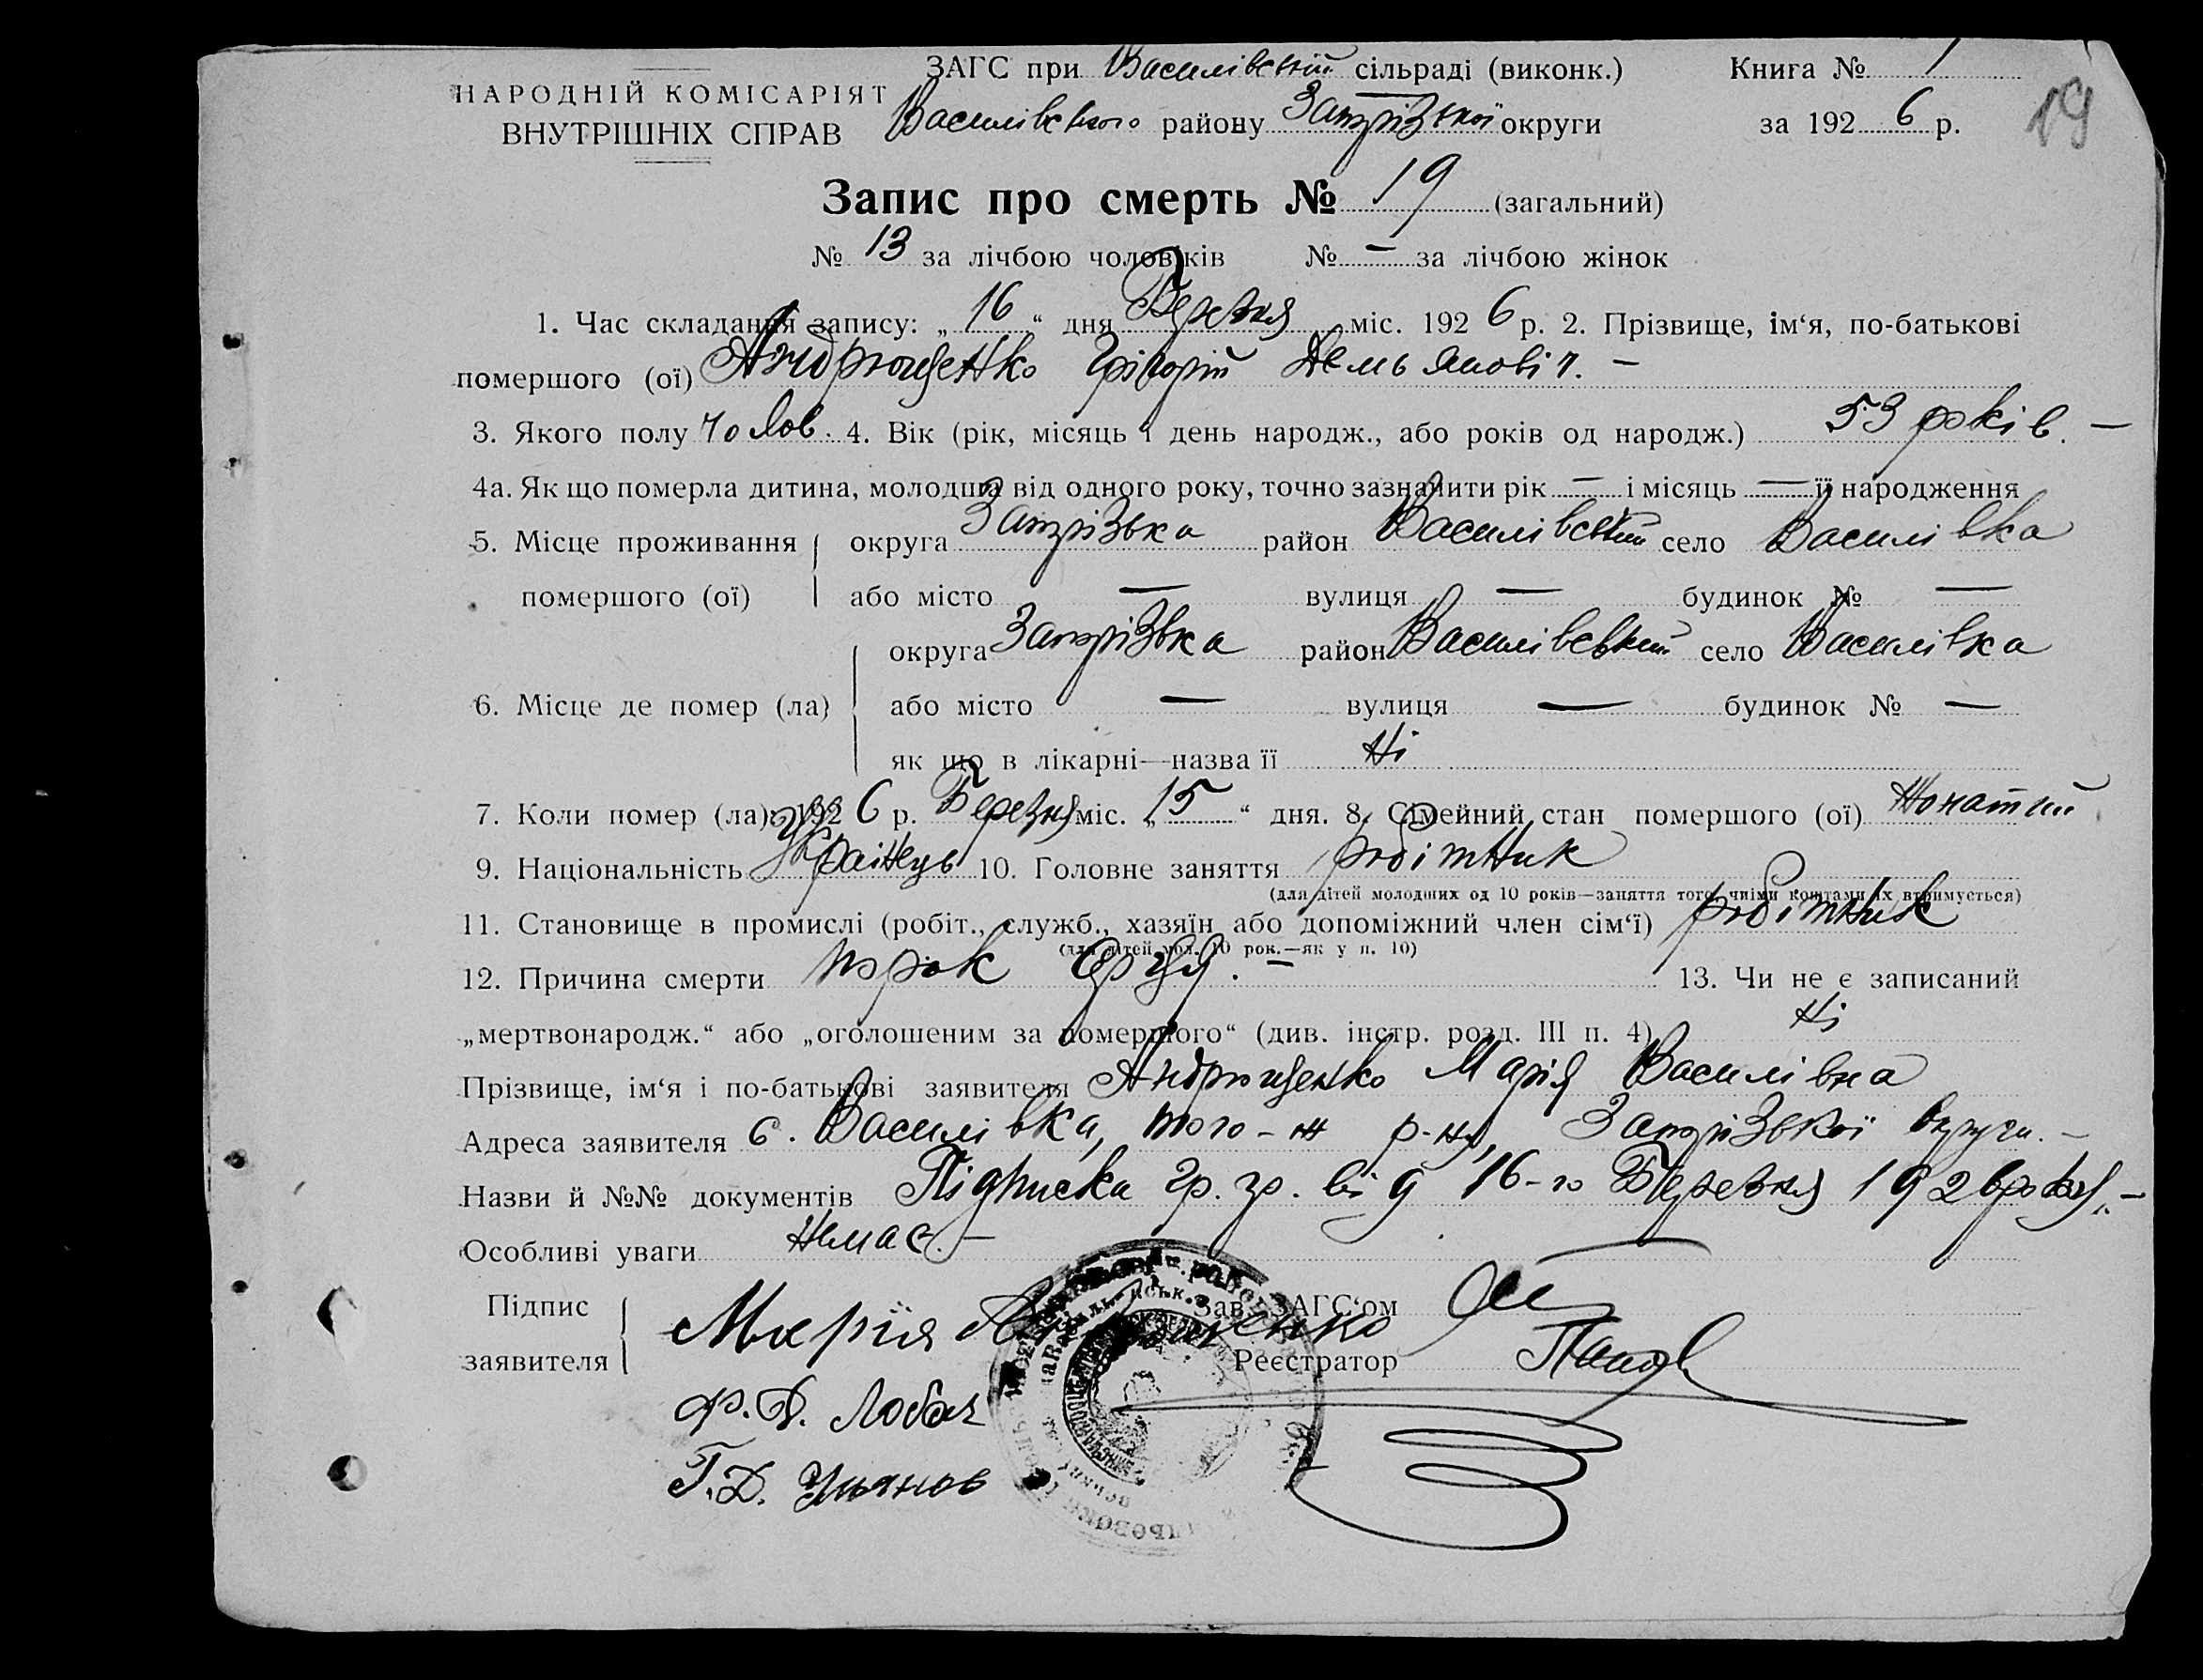 ЗАГС при Василівській сільраді (виконк.) Книга № 1
НАРОДНІЙ КОМІСАРІЯТ
ВНУТРІШНІХ СПРАВ
Василівського району Запорізької округи за 1926 р.
19
Запис про смерть № 19 (загальний)
№ 13 за лічбою чоловіків № — за лічбою жінок
1. Час складання запису: „16“ дня Березня міс. 1926 р. 2. Прізвище, ім‘я, по-батькові
помершого (ої) Андрющенко Грігорій Демьяновіч. —
3. Якого полу чолов. 4. Вік (рік, місяць і день народж., або років од народж.) 53 років. —
4а. Як що померла дитина, молодша від одного року, точно зазначити рік — і місяць — її народження
5. Місце проживання округа Запорізька район Василівський село Василівка
помершого (ої) або місто — вулиця — будинок № —
округа Запорізька район Василівський село Василівка
6. Місце де помер (ла) або місто — вулиця — будинок № —
як що в лікарні—назва її Ні
7. Коли помер (ла): 1926 р. Березня міс. „15“ дня. 8. Сімейний стан помершого (ої) Жонатий
9. Національність Українець 10. Головне заняття робітник
(для дітей молодших од 10 років—заняття того, чиїми коштами їх втримується)
11. Становище в промислі (робіт., служб., хазяїн або допоміжний член сім‘ї) робітник
(для дітей мол. 10 рок.—як у п. 10)
12. Причина смерти порок серця. — 13. Чи не є записаний
„мертвонародж.“ або „оголошеним за померлого“ (див. інстр. розд. III п. 4) Ні
Прізвище, ім‘я і по-батькові заявителя Андрющенко Марія Василівна
Адреса заявителя с. Василівка, того-ж р-ну, Запорізької округи. —
Назви й №№ документів Підписка гр. гр. від 16-го Березня 1926 року. —
Особливі уваги Немає. —
Підпис
заявителя
Мария Андрющенко
Зав. ЗАГС‘ом
Реєстратор
Ф. Д. Лобач
Г. Д. Ульянов